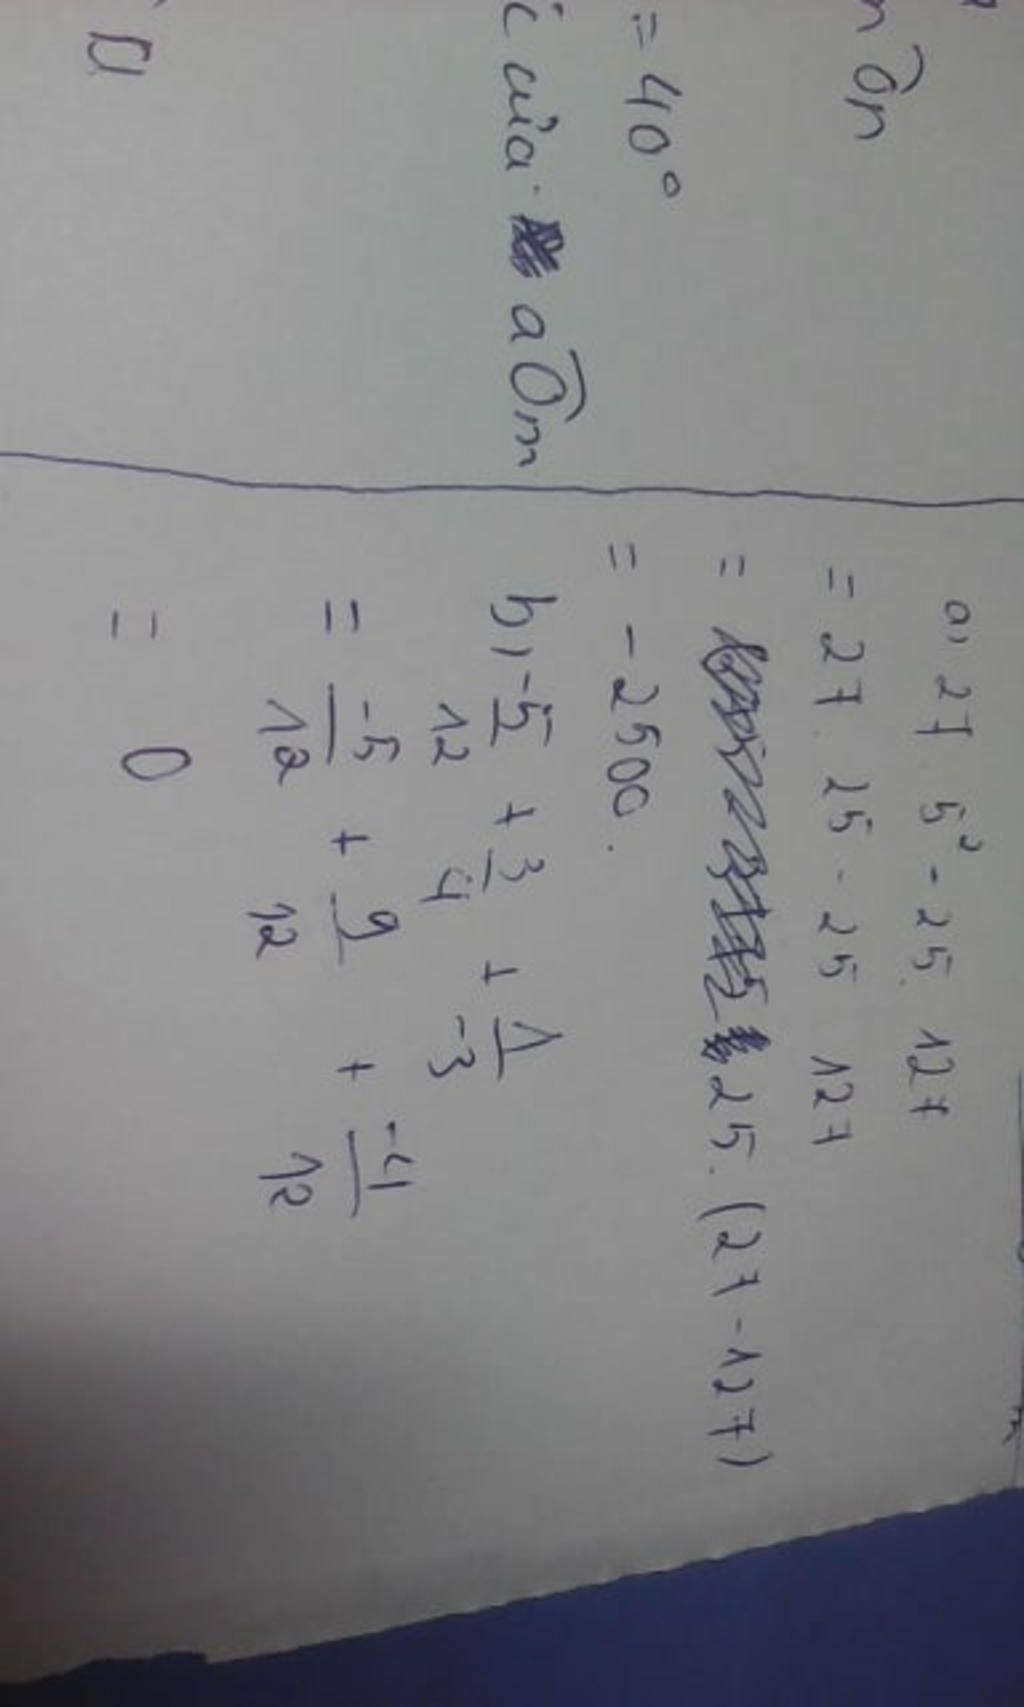 n Ôn
= 40°
i của aÔm
a, 27 . 5² - 25 . 127
= 27 . 25 - 25 127
= 25 . (27 - 127)
= -2500.
b, -5/12 + 3/4 + 1/-3
= -5/12 + 9/12 + -4/12
= 0